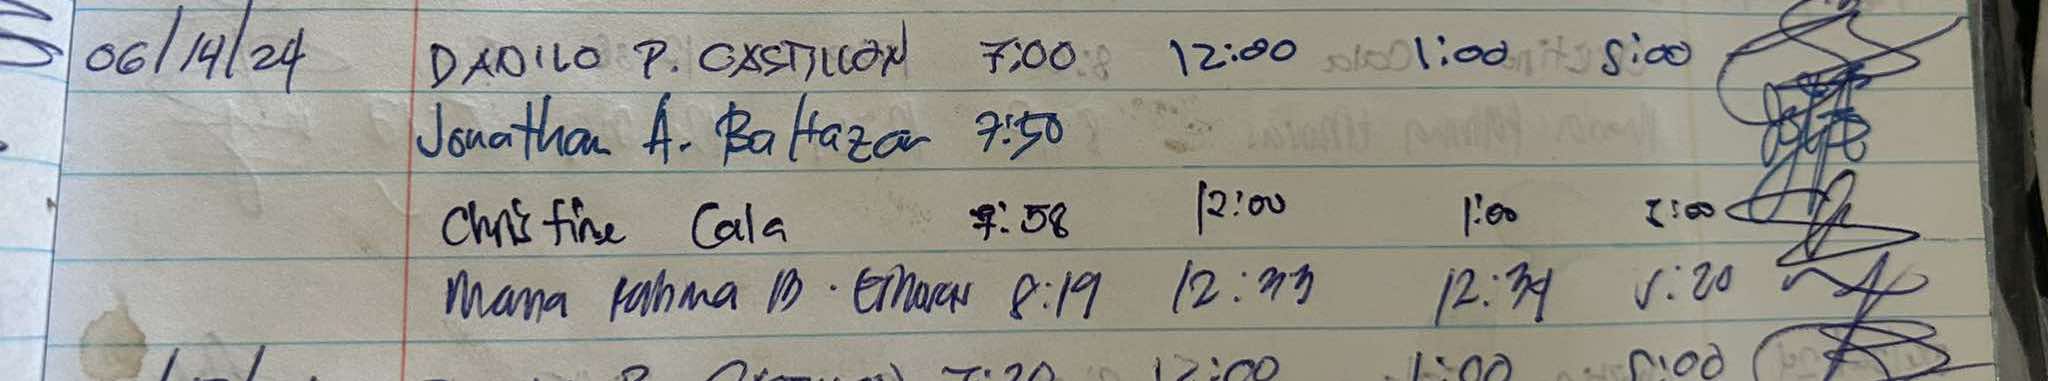 06/14/24 DADILO P. CASTILLON 7:00 12:00 1:00 5:00
Jonathan A. Baltazar 7:50
Christine Cala 7:58 12:00 1:00 5:00
Maria Fahma B. 8:19 12:33 12:34 5:20
P. 7:20 12:00 1:00 5:00